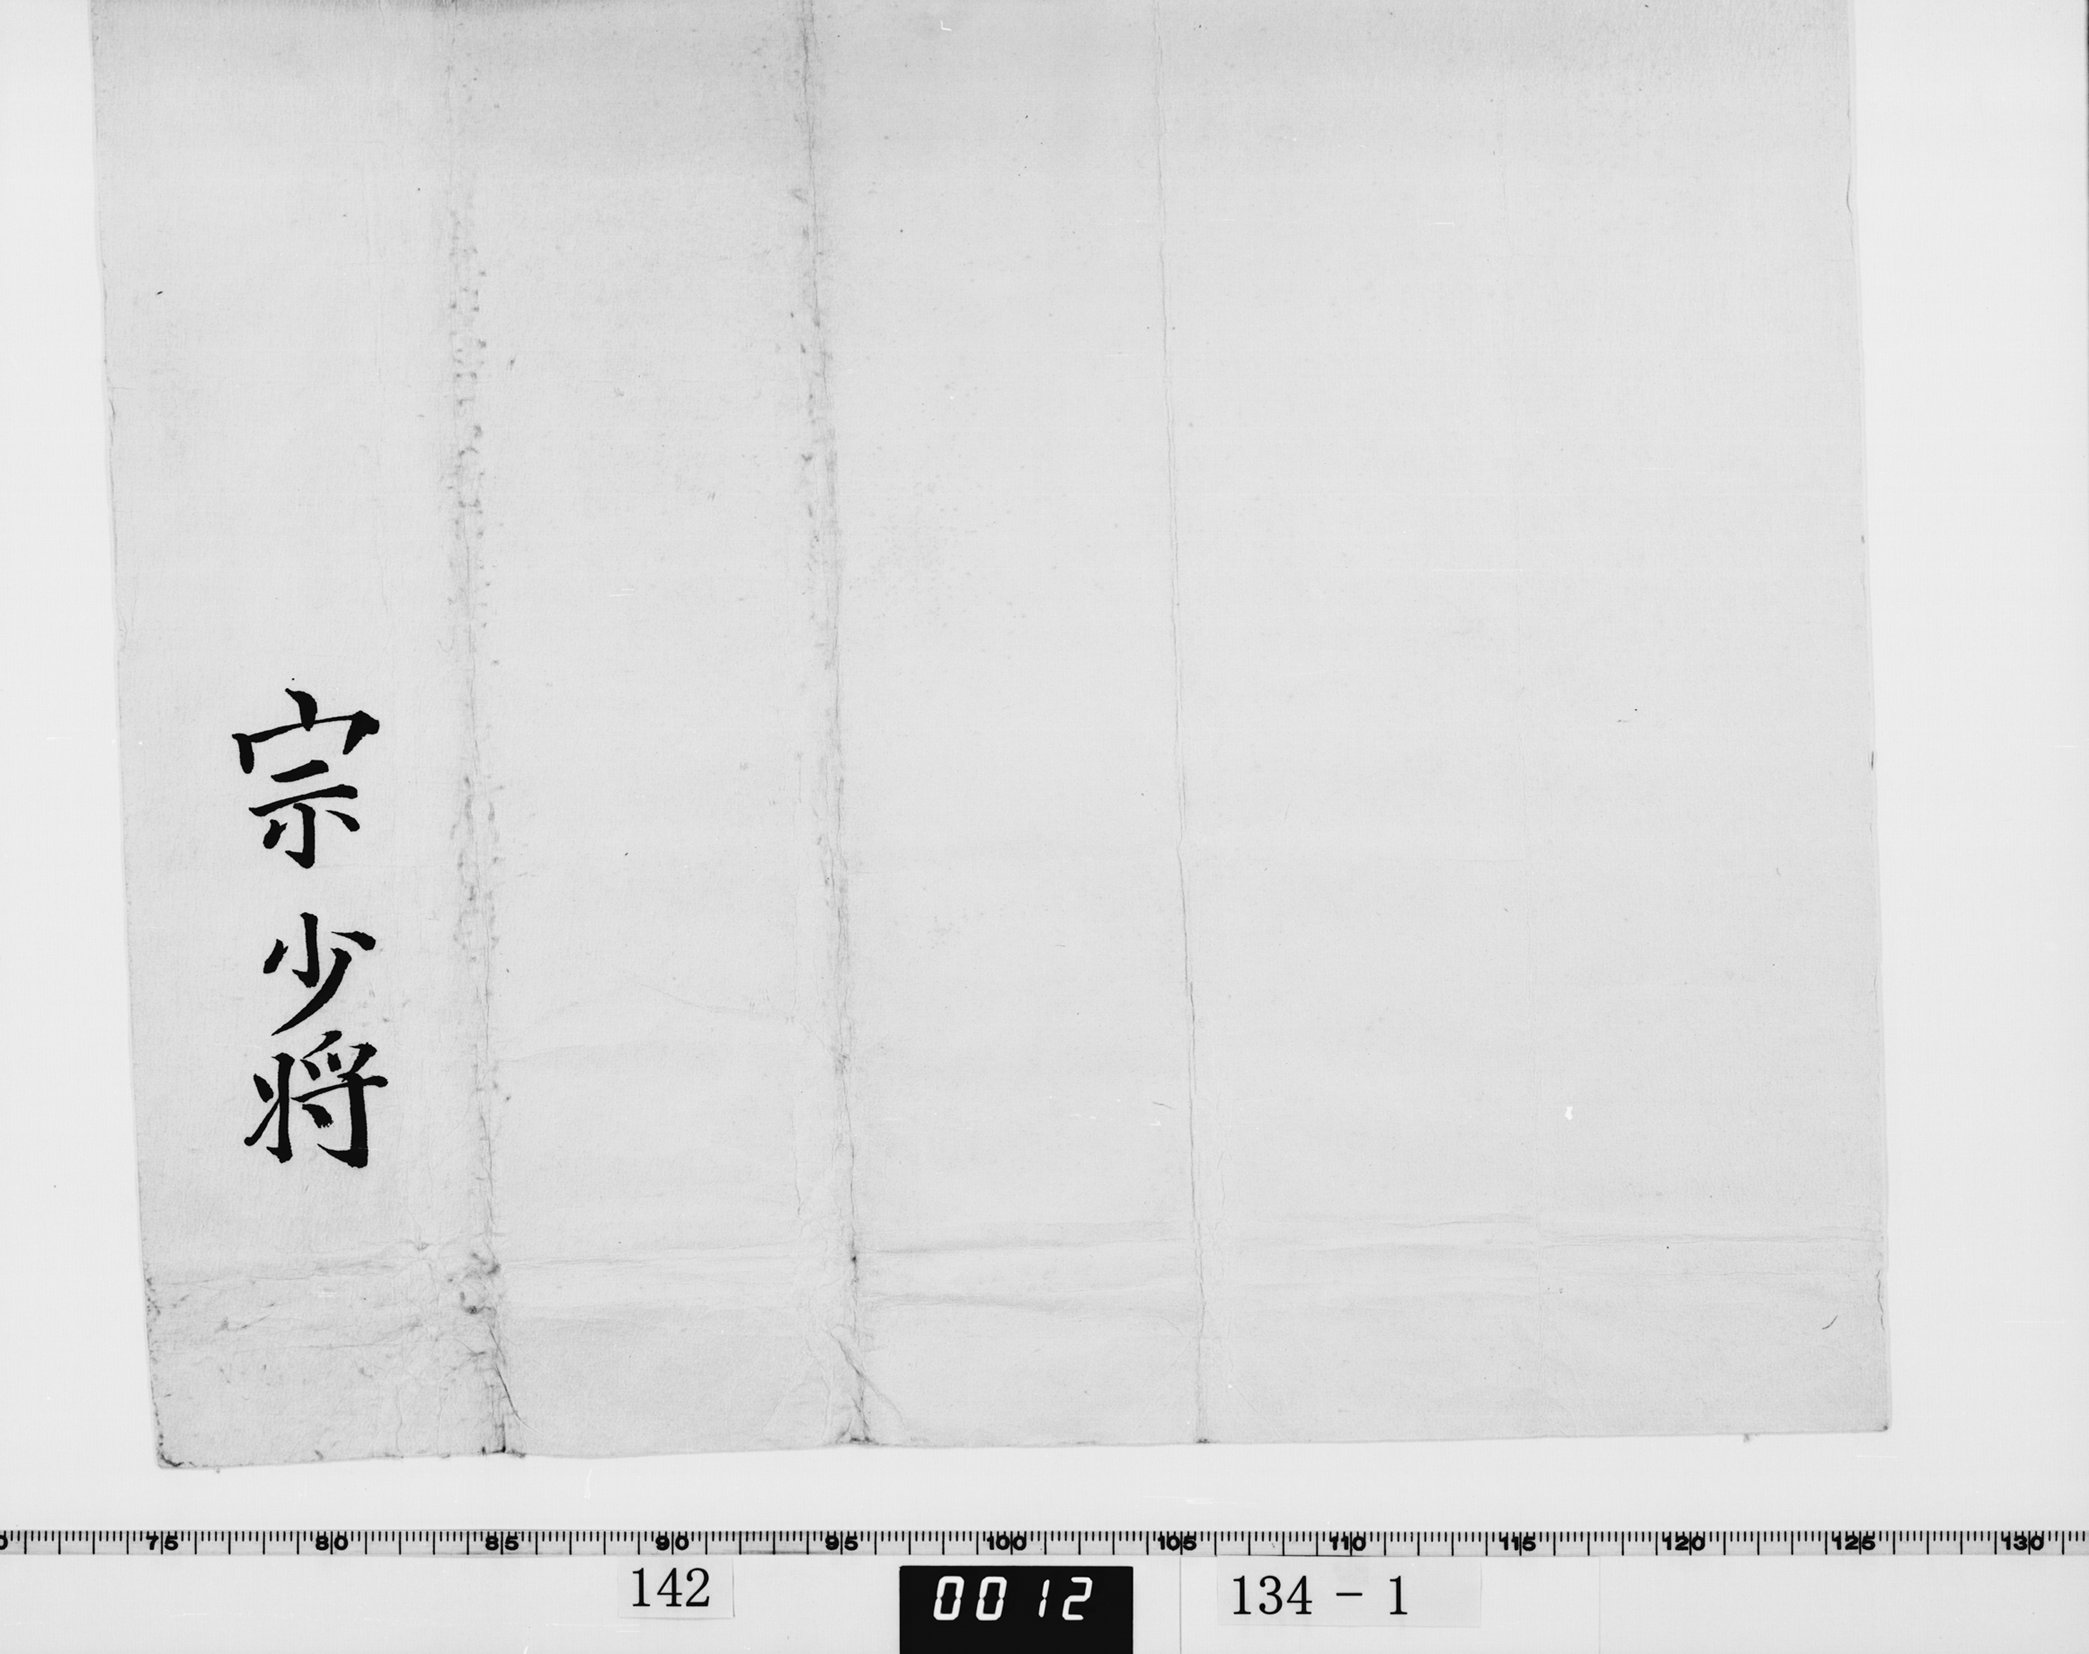 宗少将
75 80 85 90 95 100 105 110 115 120 125 130
142
0012
134-1